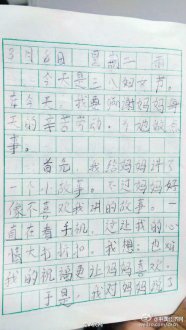 3月8日 星期二 雨
今天是三八妇女节。
在今天,我要感谢妈妈每
天的辛苦劳动,为她做点
事。
首先,我给妈妈讲了
一个小故事。不过妈妈好
像不喜欢我讲的故事。一
直在看手机,这让我的心
情大打折扣。我想:也许
我的祝福更让妈妈喜欢。
于是,我对妈妈说了